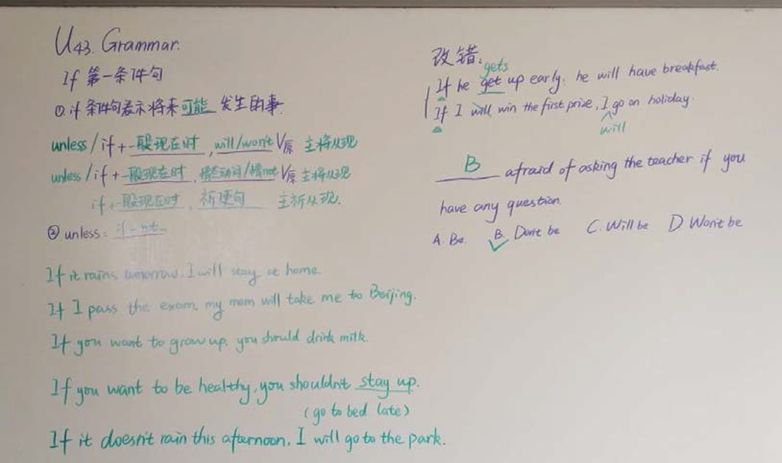 U43. Grammar.
If 第一条件句
① if 条件句表示将来可能发生的事
unless/if + 一般现在时, will/won't V原 主将从现
unless/if + 一般现在时, 情态动词/情not V原 主将从现
if + 一般现在时, 祈使句 主祈从现.
② unless = if-not
If it rains tomorrow, I will stay at home.
If I pass the exam, my mom will take me to Beijing.
If you want to grow up, you should drink milk.
If you want to be healthy, you shouldn't stay up.
(go to bed late)
If it doesn't rain this afternoon, I will go to the park.
改错:
gets
If he get up early, he will have breakfast.
If I will win the first prize, I go on holiday.
will
B afraid of asking the teacher if you
have any question.
A. Be. B. Don't be C. Will be D Won't be